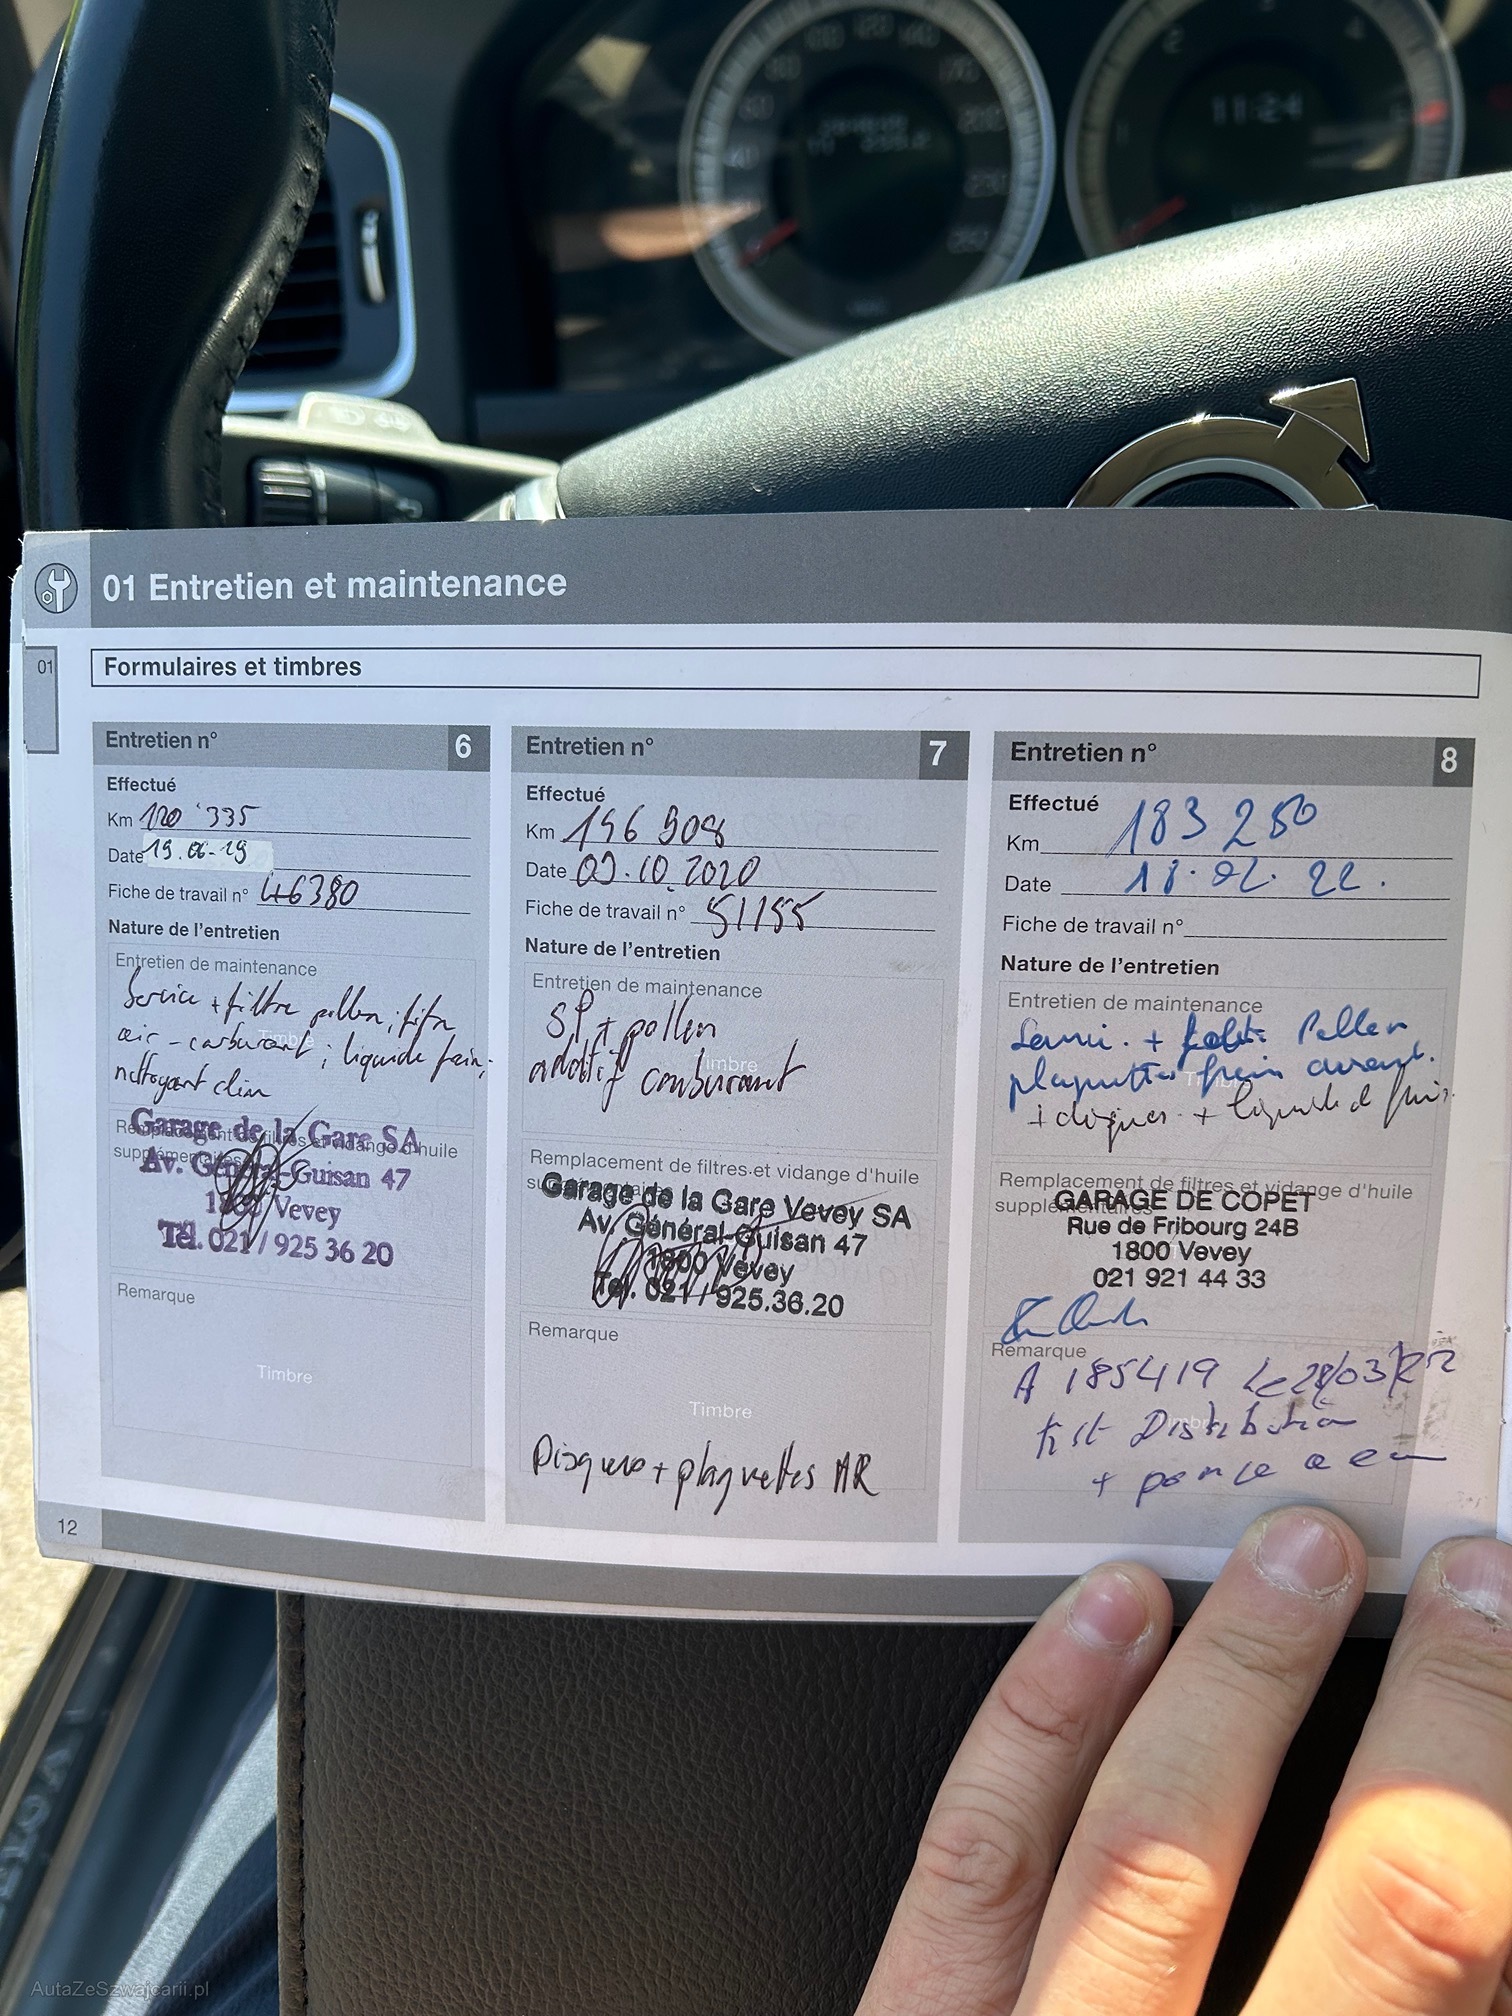 11:24
01 Entretien et maintenance
01
Formulaires et timbres
Entretien n° 6
Effectué
Km 120'335
Date 19.06-19
Fiche de travail n° 46380
Nature de l'entretien
Entretien de maintenance
Service + filtre pollen; filtre
air - carburant; liquide frein;
nettoyant clim
Remplacement de filtres et vidange d'huile
supplémentaires
Garage de la Gare SA
Av. Général-Guisan 47
1800 Vevey
Tél. 021 / 925 36 20
Remarque
Timbre
Entretien n° 7
Effectué
Km 146 908
Date 09.10.2020
Fiche de travail n° 51155
Nature de l'entretien
Entretien de maintenance
SP + pollen
additif carburant
Timbre
Remplacement de filtres et vidange d'huile
supplémentaires
Garage de la Gare Vevey SA
Av. Général-Guisan 47
1800 Vevey
Tél. 021 / 925.36.20
Remarque
Timbre
Disques + plaquettes AR
Entretien n° 8
Effectué
Km 183 250
Date 18.02.22.
Fiche de travail n°
Nature de l'entretien
Entretien de maintenance
+ Pollen
plaquettes frein avant.
+ disques + liquide d frein
Remplacement de filtres et vidange d'huile
supplémentaires
GARAGE DE COPET
Rue de Fribourg 24B
1800 Vevey
021 921 44 33
Remarque
A 185419 Le 28/03/22
Kit Distribution
+ pompe a eau
12
AutaZeSzwajcarii.pl